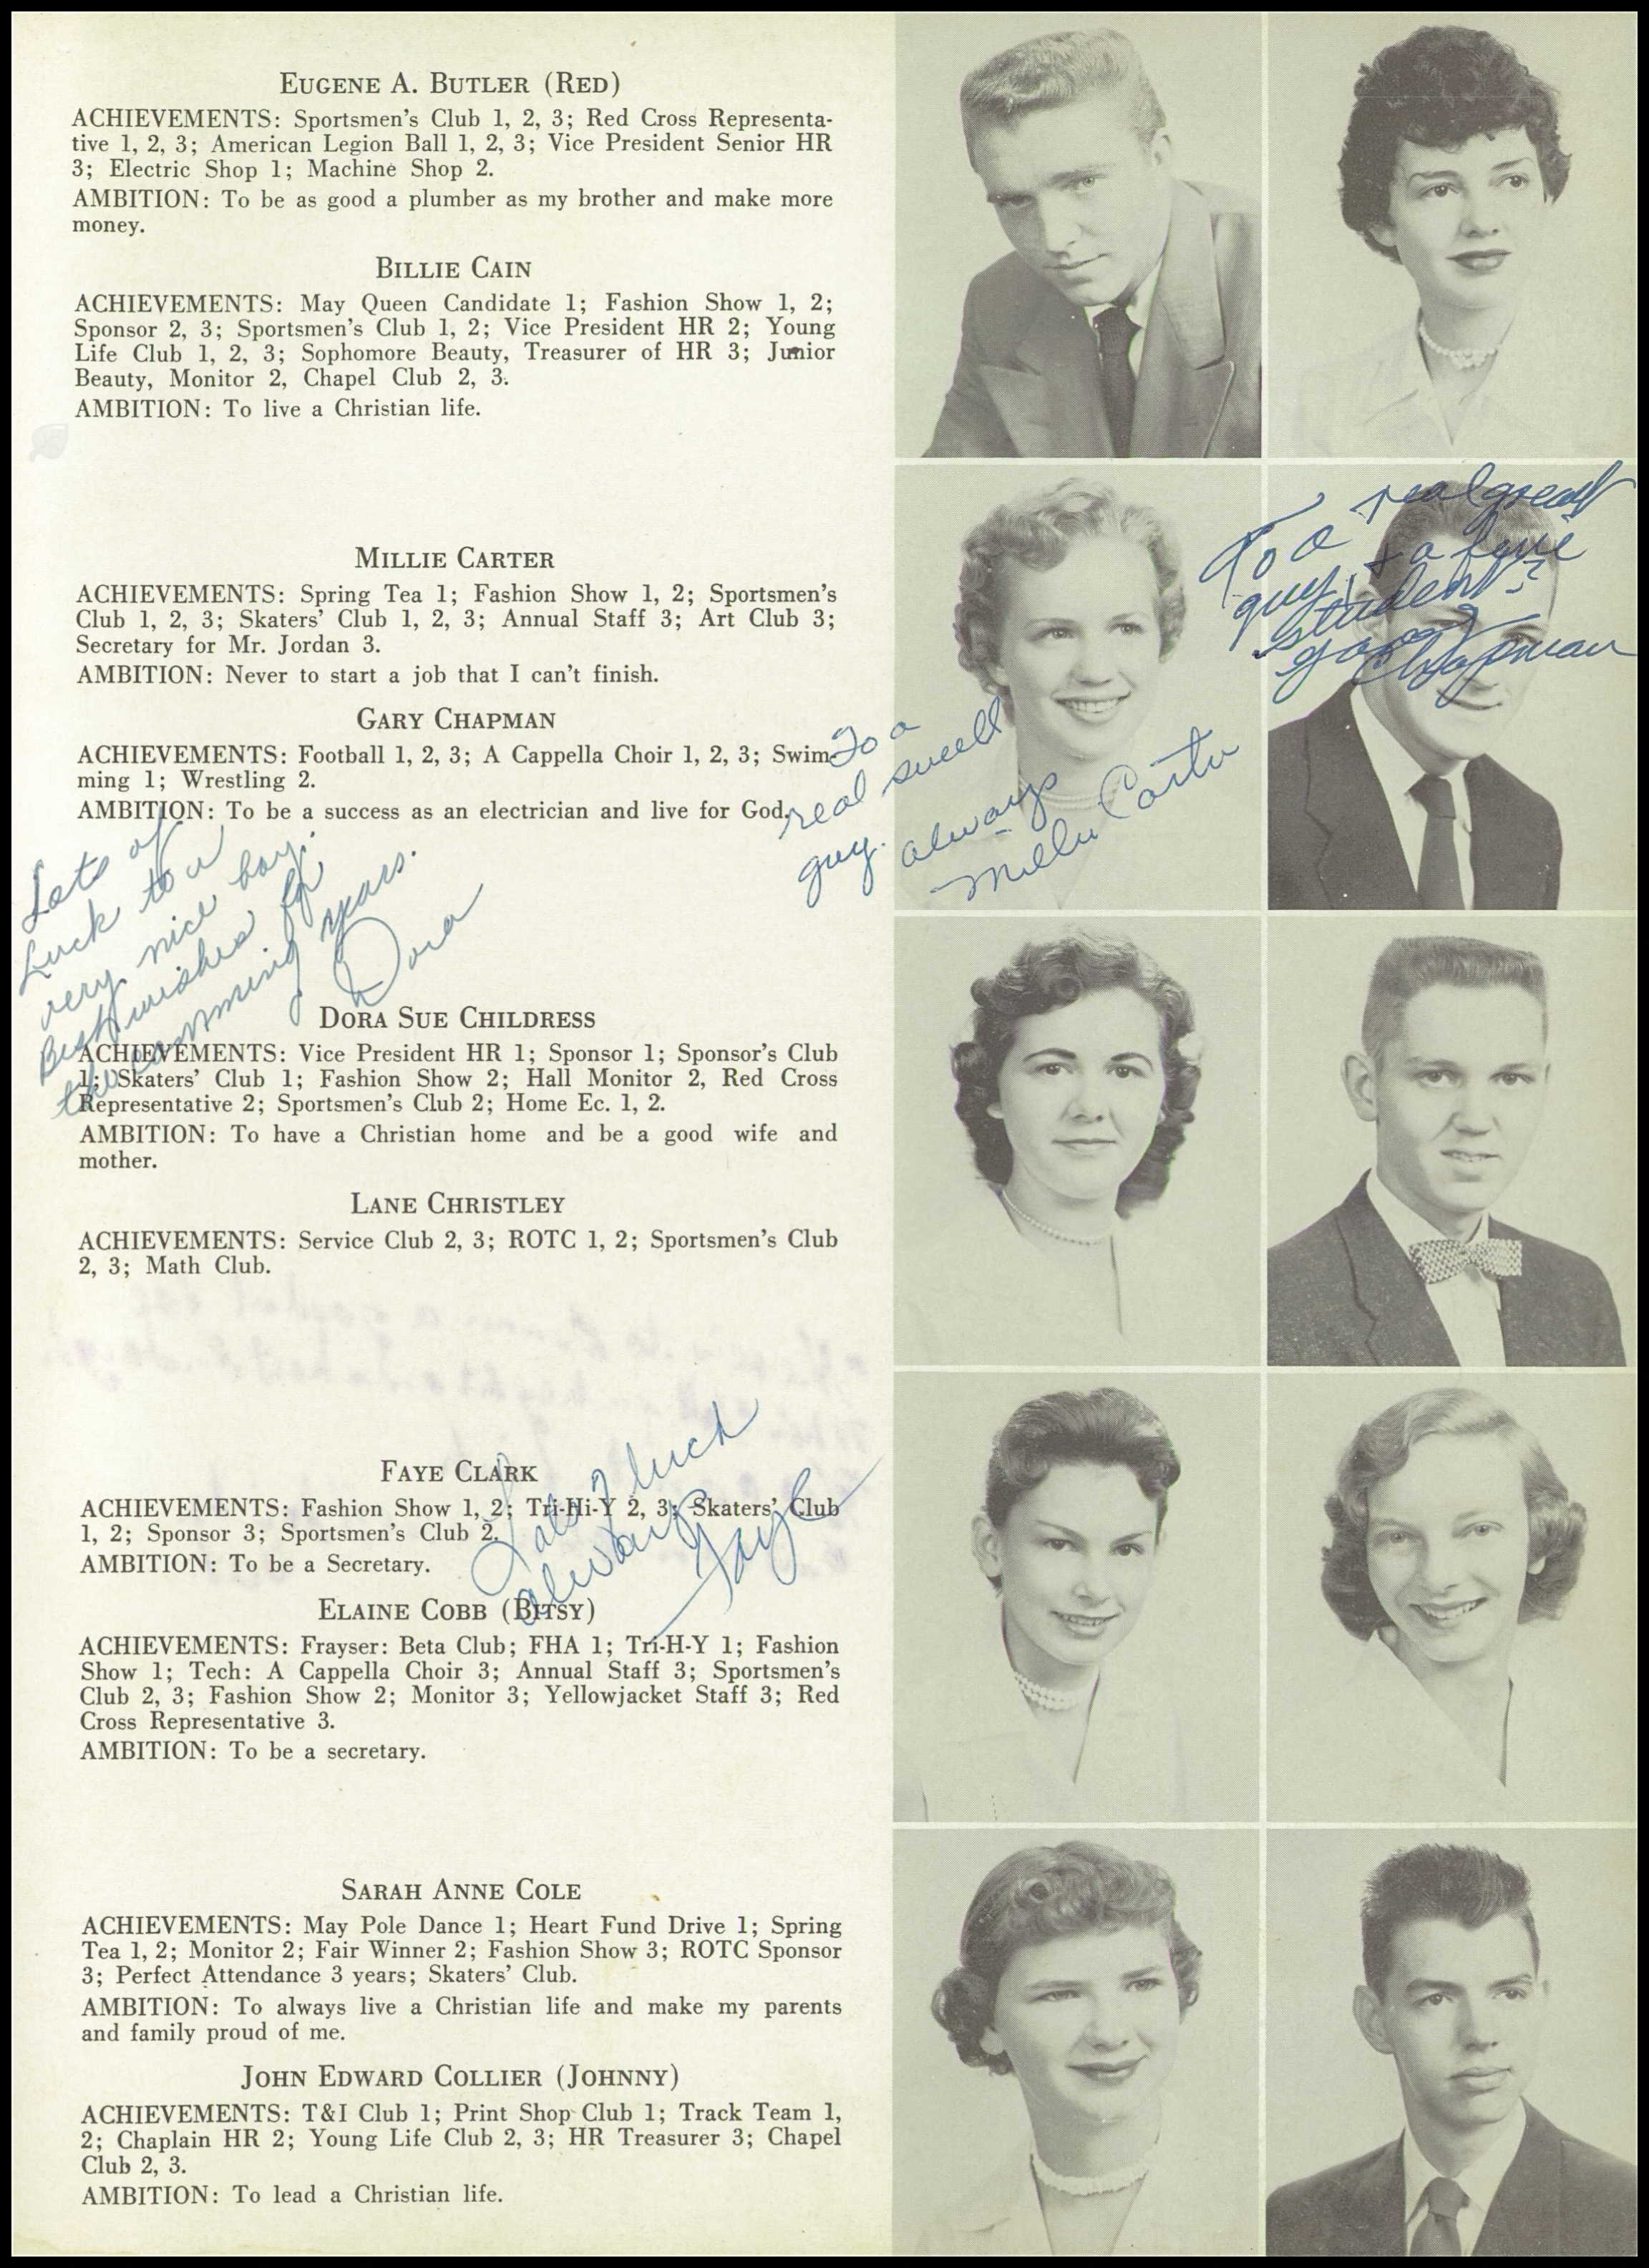 EUGENE A. BUTLER (RED)
ACHIEVEMENTS: Sportsmen's Club 1, 2, 3; Red Cross Representa-
tive 1, 2, 3; American Legion Ball 1, 2, 3; Vice President Senior HR
3; Electric Shop 1; Machine Shop 2.
AMBITION: To be as good a plumber as my brother and make more
money.
BILLIE CAIN
ACHIEVEMENTS: May Queen Candidate 1; Fashion Show 1, 2;
Sponsor 2, 3; Sportsmen's Club 1, 2; Vice President HR 2; Young
Life Club 1, 2, 3; Sophomore Beauty, Treasurer of HR 3; Junior
Beauty, Monitor 2, Chapel Club 2, 3.
AMBITION: To live a Christian life.
MILLIE CARTER
ACHIEVEMENTS: Spring Tea 1; Fashion Show 1, 2; Sportsmen's
Club 1, 2, 3; Skaters' Club 1, 2, 3; Annual Staff 3; Art Club 3;
Secretary for Mr. Jordan 3.
AMBITION: Never to start a job that I can't finish.
GARY CHAPMAN
ACHIEVEMENTS: Football 1, 2, 3; A Cappella Choir 1, 2, 3; Swim-
ming 1; Wrestling 2.
AMBITION: To be a success as an electrician and live for God.
To a
real swell
guy. always
Millie Carter
To a real great
guy, & a fine
student?
Gary
Chapman
Lots of
Luck to a
very nice boy.
Best wishes for
the comming years.
Dora
DORA SUE CHILDRESS
ACHIEVEMENTS: Vice President HR 1; Sponsor 1; Sponsor's Club
1; Skaters' Club 1; Fashion Show 2; Hall Monitor 2, Red Cross
Representative 2; Sportsmen's Club 2; Home Ec. 1, 2.
AMBITION: To have a Christian home and be a good wife and
mother.
LANE CHRISTLEY
ACHIEVEMENTS: Service Club 2, 3; ROTC 1, 2; Sportsmen's Club
2, 3; Math Club.
FAYE CLARK
ACHIEVEMENTS: Fashion Show 1, 2; Tri-Hi-Y 2, 3; Skaters' Club
1, 2; Sponsor 3; Sportsmen's Club 2.
AMBITION: To be a Secretary.
Lots of luck
always
Faye
ELAINE COBB (BITSY)
ACHIEVEMENTS: Frayser: Beta Club; FHA 1; Tri-H-Y 1; Fashion
Show 1; Tech: A Cappella Choir 3; Annual Staff 3; Sportsmen's
Club 2, 3; Fashion Show 2; Monitor 3; Yellowjacket Staff 3; Red
Cross Representative 3.
AMBITION: To be a secretary.
SARAH ANNE COLE
ACHIEVEMENTS: May Pole Dance 1; Heart Fund Drive 1; Spring
Tea 1, 2; Monitor 2; Fair Winner 2; Fashion Show 3; ROTC Sponsor
3; Perfect Attendance 3 years; Skaters' Club.
AMBITION: To always live a Christian life and make my parents
and family proud of me.
JOHN EDWARD COLLIER (JOHNNY)
ACHIEVEMENTS: T&I Club 1; Print Shop Club 1; Track Team 1,
2; Chaplain HR 2; Young Life Club 2, 3; HR Treasurer 3; Chapel
Club 2, 3.
AMBITION: To lead a Christian life.